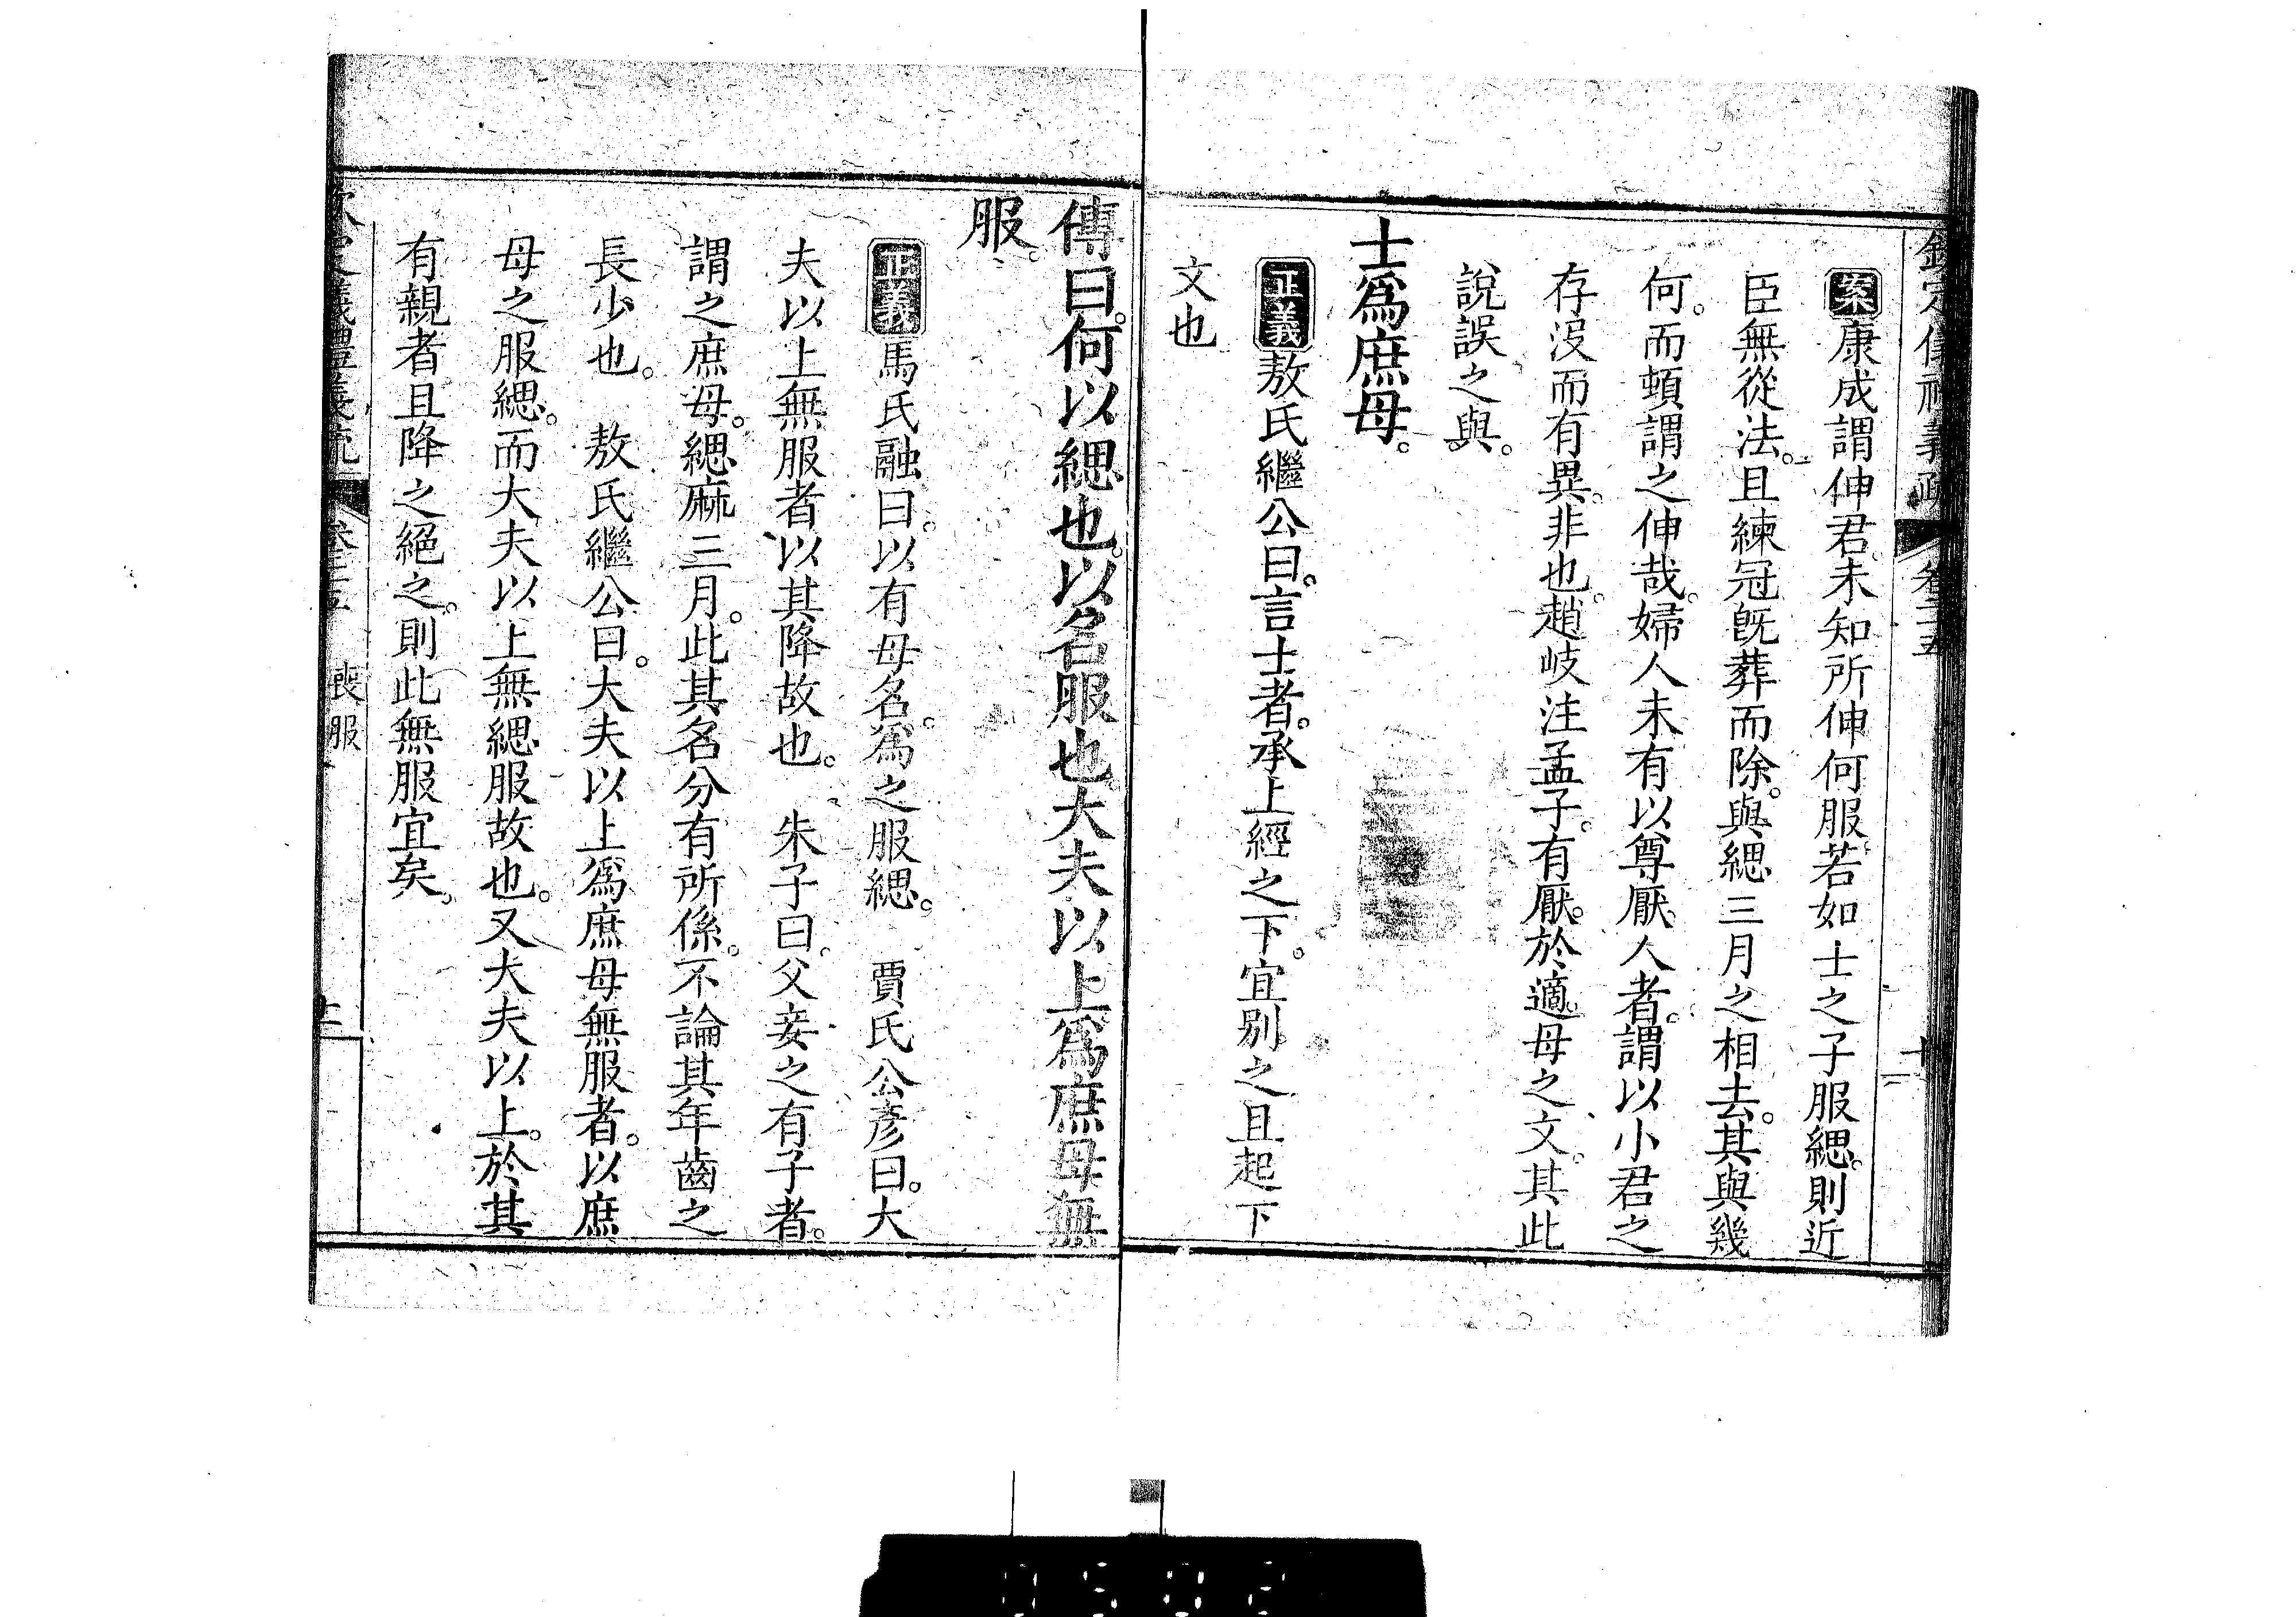 欽定儀禮義疏 卷二十五 十二
案康成謂伸君。未知所伸何服。若如士之子服緦。則近
臣無從法。且練冠旣葬而除。與緦三月之相去。其與幾
何。而頓謂之伸哉。婦人未有以尊厭人者。謂以小君之
存沒而有異。非也。趙岐注孟子。有厭於適母之文。其此
說誤之與。
士爲庶母。
正義敖氏繼公曰。言士者。承上經之下。宜別之且起下
文也
傳曰。何以緦也。以名服也。大夫以上爲庶母無
服。
正義馬氏融曰。以有母名。爲之服緦。 賈氏公彥曰。大
夫以上無服者。以其降故也。 朱子曰。父妾之有子者。
謂之庶母。緦麻三月。此其名分有所係。不論其年齒之
長少也。 敖氏繼公曰。大夫以上爲庶母無服者。以庶
母之服緦。而大夫以上無緦服故也。又大夫以上。於其
有親者且降之絕之。則此無服宜矣。
欽定儀禮義疏 卷二十五 喪服